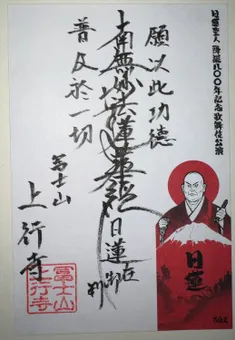 日蓮聖人 降誕八〇〇年記念歌舞伎公演
日蓮
願以此功徳
南無妙法蓮華経
日蓮
在御判
普及於一切
冨士山
上行寺
冨士山
上行寺